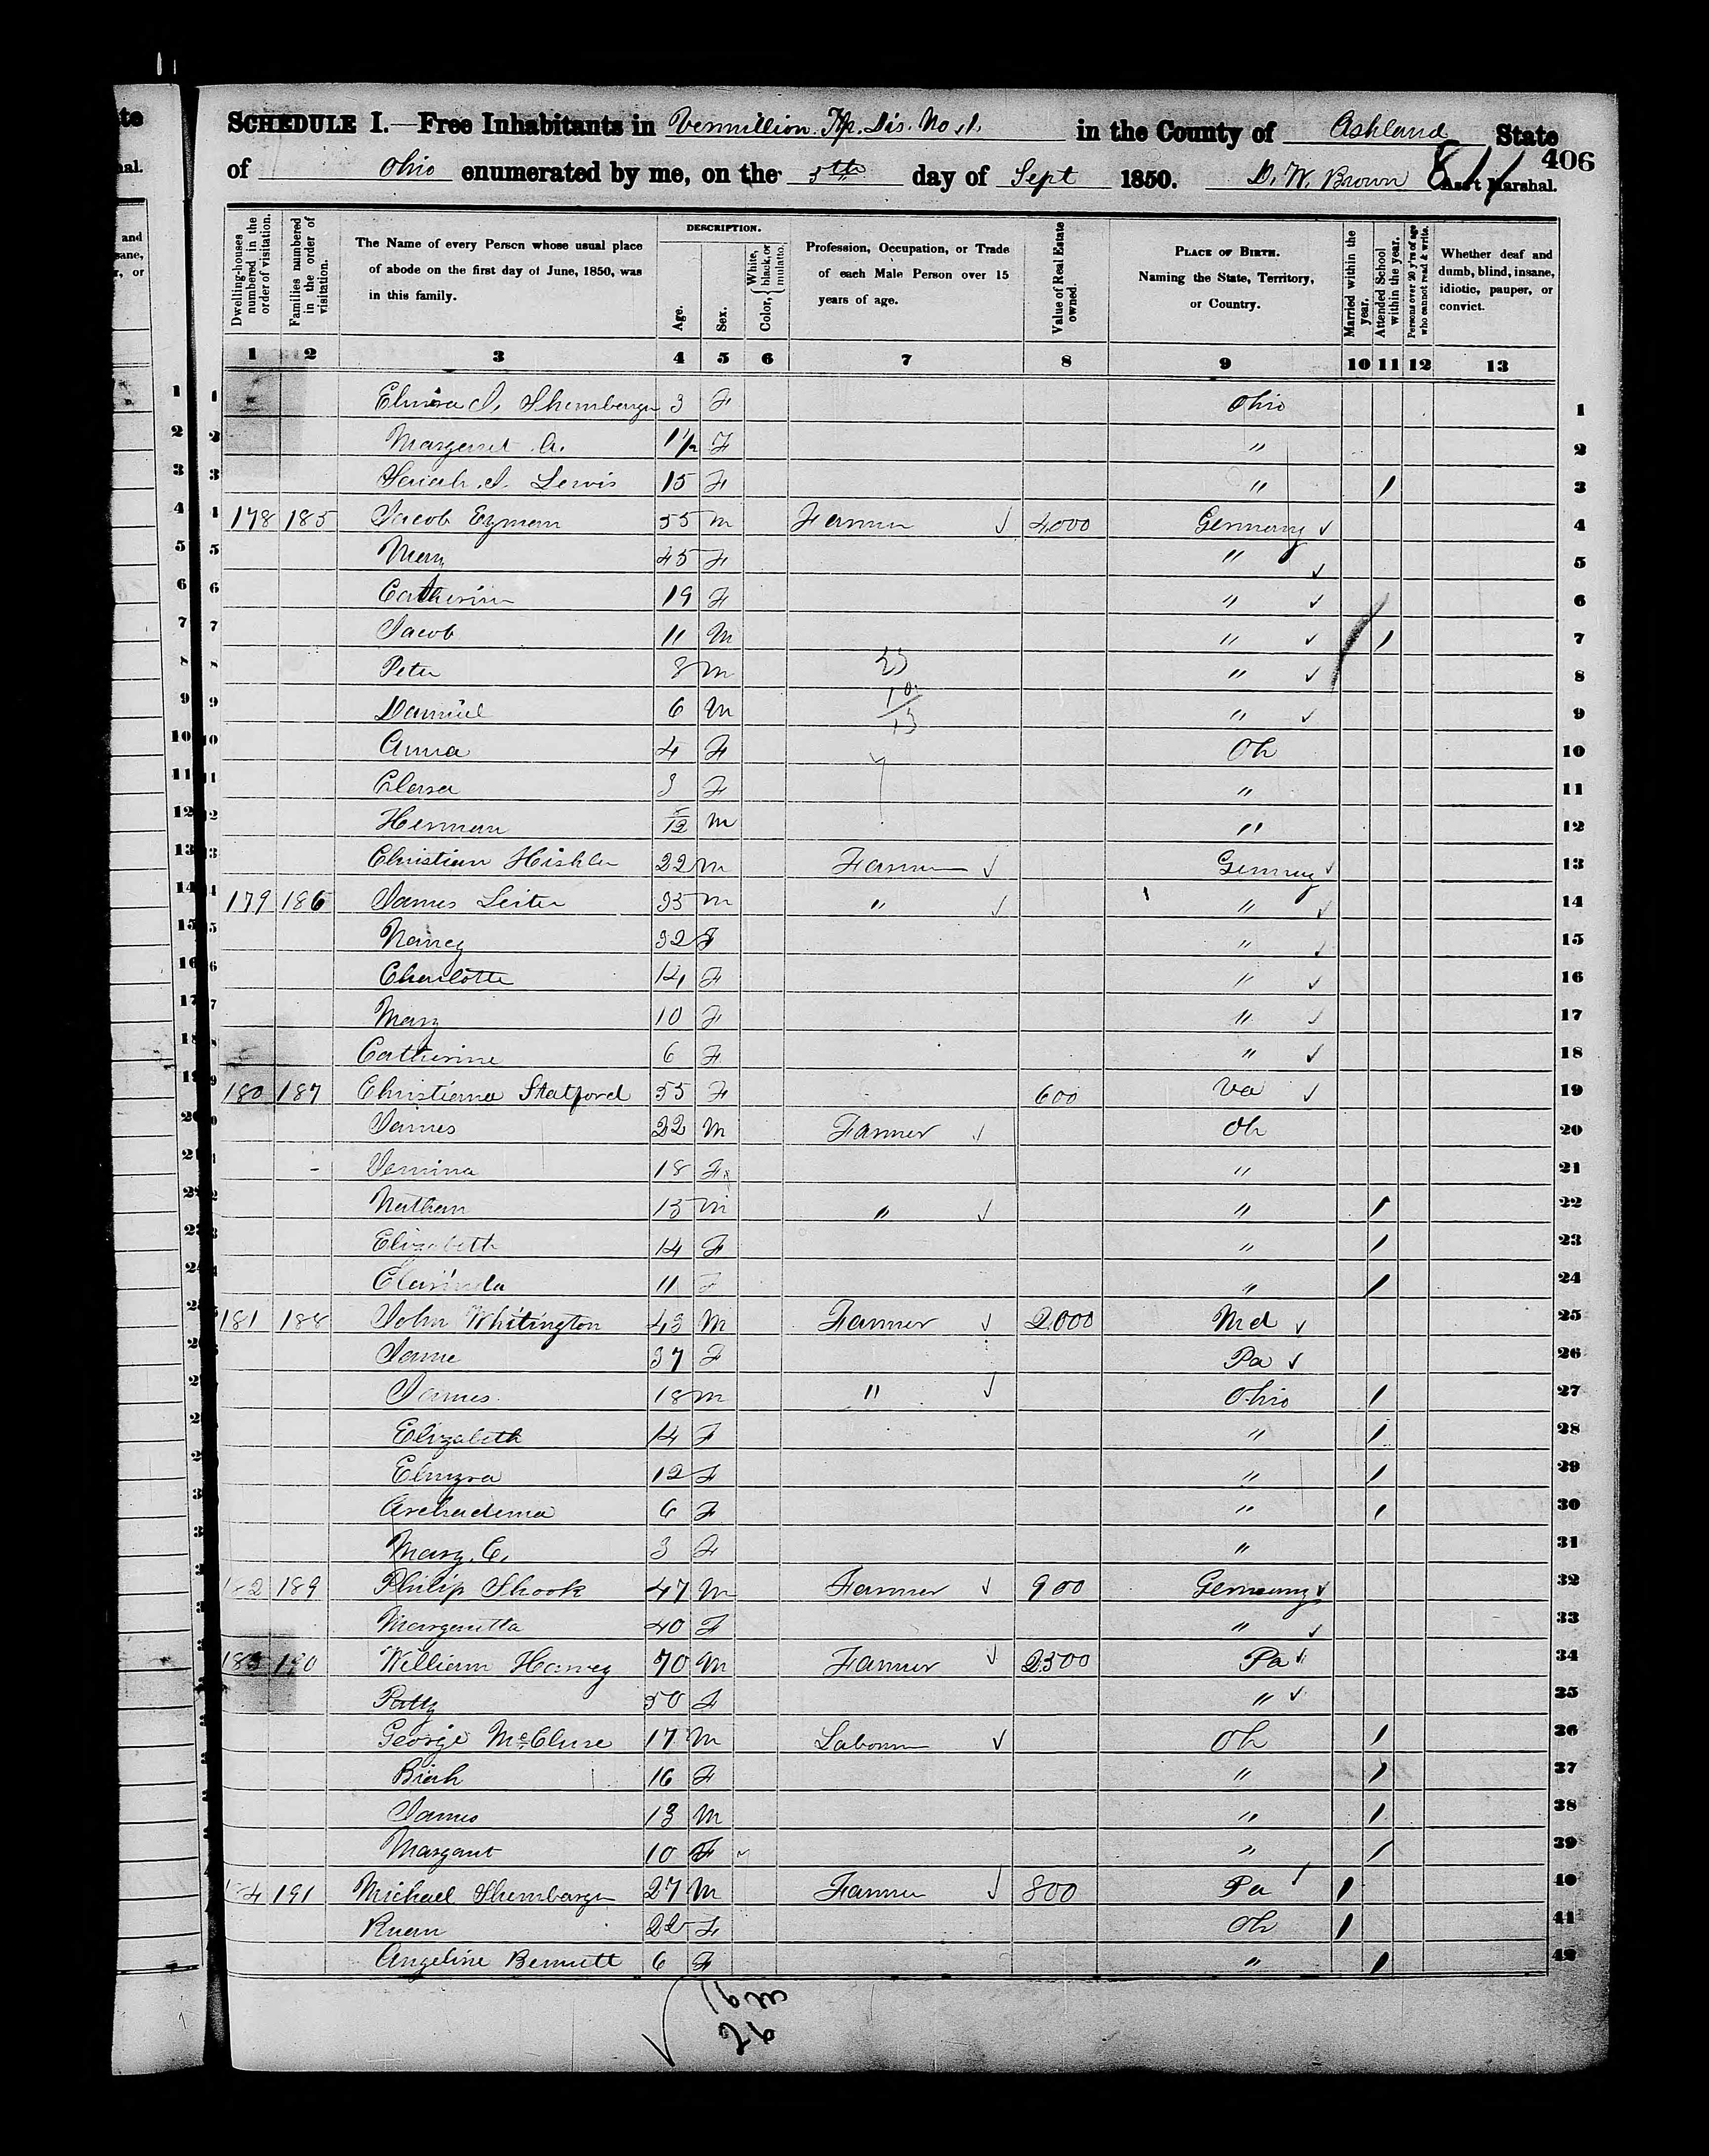 SCHEDULE I.—Free Inhabitants in Vermillion Tp. Dis. No 1. in the County of Ashland State
of Ohio enumerated by me, on the 5th day of Sept 1850. D. W. Brown Ass't Marshal.
406
811
Dwelling-houses numbered in the order of visitation.
Families numbered in the order of visitation.
The Name of every Person whose usual place of abode on the first day of June, 1850, was in this family.
DESCRIPTION.
Age.
Sex.
Color, White, black, or mulatto.
Profession, Occupation, or Trade of each Male Person over 15 years of age.
Value of Real Estate owned.
PLACE OF BIRTH. Naming the State, Territory, or Country.
Married within the year.
Attended School within the year.
Persons over 20 y'rs of age who cannot read & write.
Whether deaf and dumb, blind, insane, idiotic, pauper, or convict.
1 2 3 4 5 6 7 8 9 10 11 12 13
1 Elmira J. Shemberger 3 F Ohio 1
2 Margaret A. 1 1/2 F " 2
3 Sariah J. Lewis 15 F " / 3
4 178 185 Jacob Eyman 55 m Farmer ✓ 4000 Germany ✓ 4
5 Mary 45 F " ✓ 5
6 Catherine 19 F " ✓ 6
7 Jacob 11 M " ✓ / 7
8 Peter 8 m " ✓ 8
9 Damuel 6 M " ✓ 9
10 Anna 4 F Oh 10
11 Clarsa 3 F " 11
12 Herman 5/12 m " 12
13 Christian Hishler 22 m Farmer ✓ Germany ✓ 13
14 179 186 James Leiter 35 m " ✓ " ✓ 14
15 Nancy 32 F " ✓ 15
16 Charlotte 14 F " ✓ 16
17 Mary 10 F " ✓ 17
18 Catherine 6 F " ✓ 18
19 180 187 Christiana Statford 55 F 600 Va ✓ 19
20 James 22 M Farmer ✓ Oh 20
21 Jemima 18 F " 21
22 Nathan 15 m " ✓ " / 22
23 Elizabeth 14 F " / 23
24 Clarinda 11 F " / 24
25 181 188 John Whitington 43 M Farmer ✓ 2000 Md ✓ 25
26 Jane 37 F Pa ✓ 26
27 James 18 m " ✓ Ohio / 27
28 Elizabeth 14 F " / 28
29 Elmyra 12 F " / 29
30 Archadema 6 F " / 30
31 Mary C. 3 F " 31
32 182 189 Philip Shook 47 M Farmer ✓ 900 Germany ✓ 32
33 Margaretta 40 F " ✓ 33
34 183 190 William Harvey 70 M Farmer ✓ 2300 Pa ✓ 34
35 Patty 50 F " ✓ 35
36 George McClure 17 M Laborer ✓ Oh / 36
37 Biah 16 F " / 37
38 James 13 M " / 38
39 Margaret 10 F " / 39
40 184 191 Michael Shemberger 27 M Farmer ✓ 800 Pa / 40
41 Ruan 22 F Oh / 41
42 Angeline Bennett 6 F " / 42